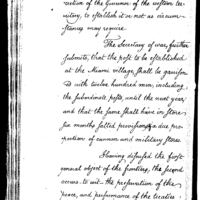 rection of the Governor of the western ter-
ritory, to establish it or not as circum-
stances may require.
The Secretary of war, further
submits, that the post to be established
at the Miami village, shall be garrison
ed with twelve hundred men, including
the subordinate posts, until the next year,
and that the same shall have in store
six months salted provisions, & a due pro-
portion of cannon and military stores.
Having discussed the first
general object of the funding, the second
occurs. to wit – the preparation of the
peace, and performance of the treaties